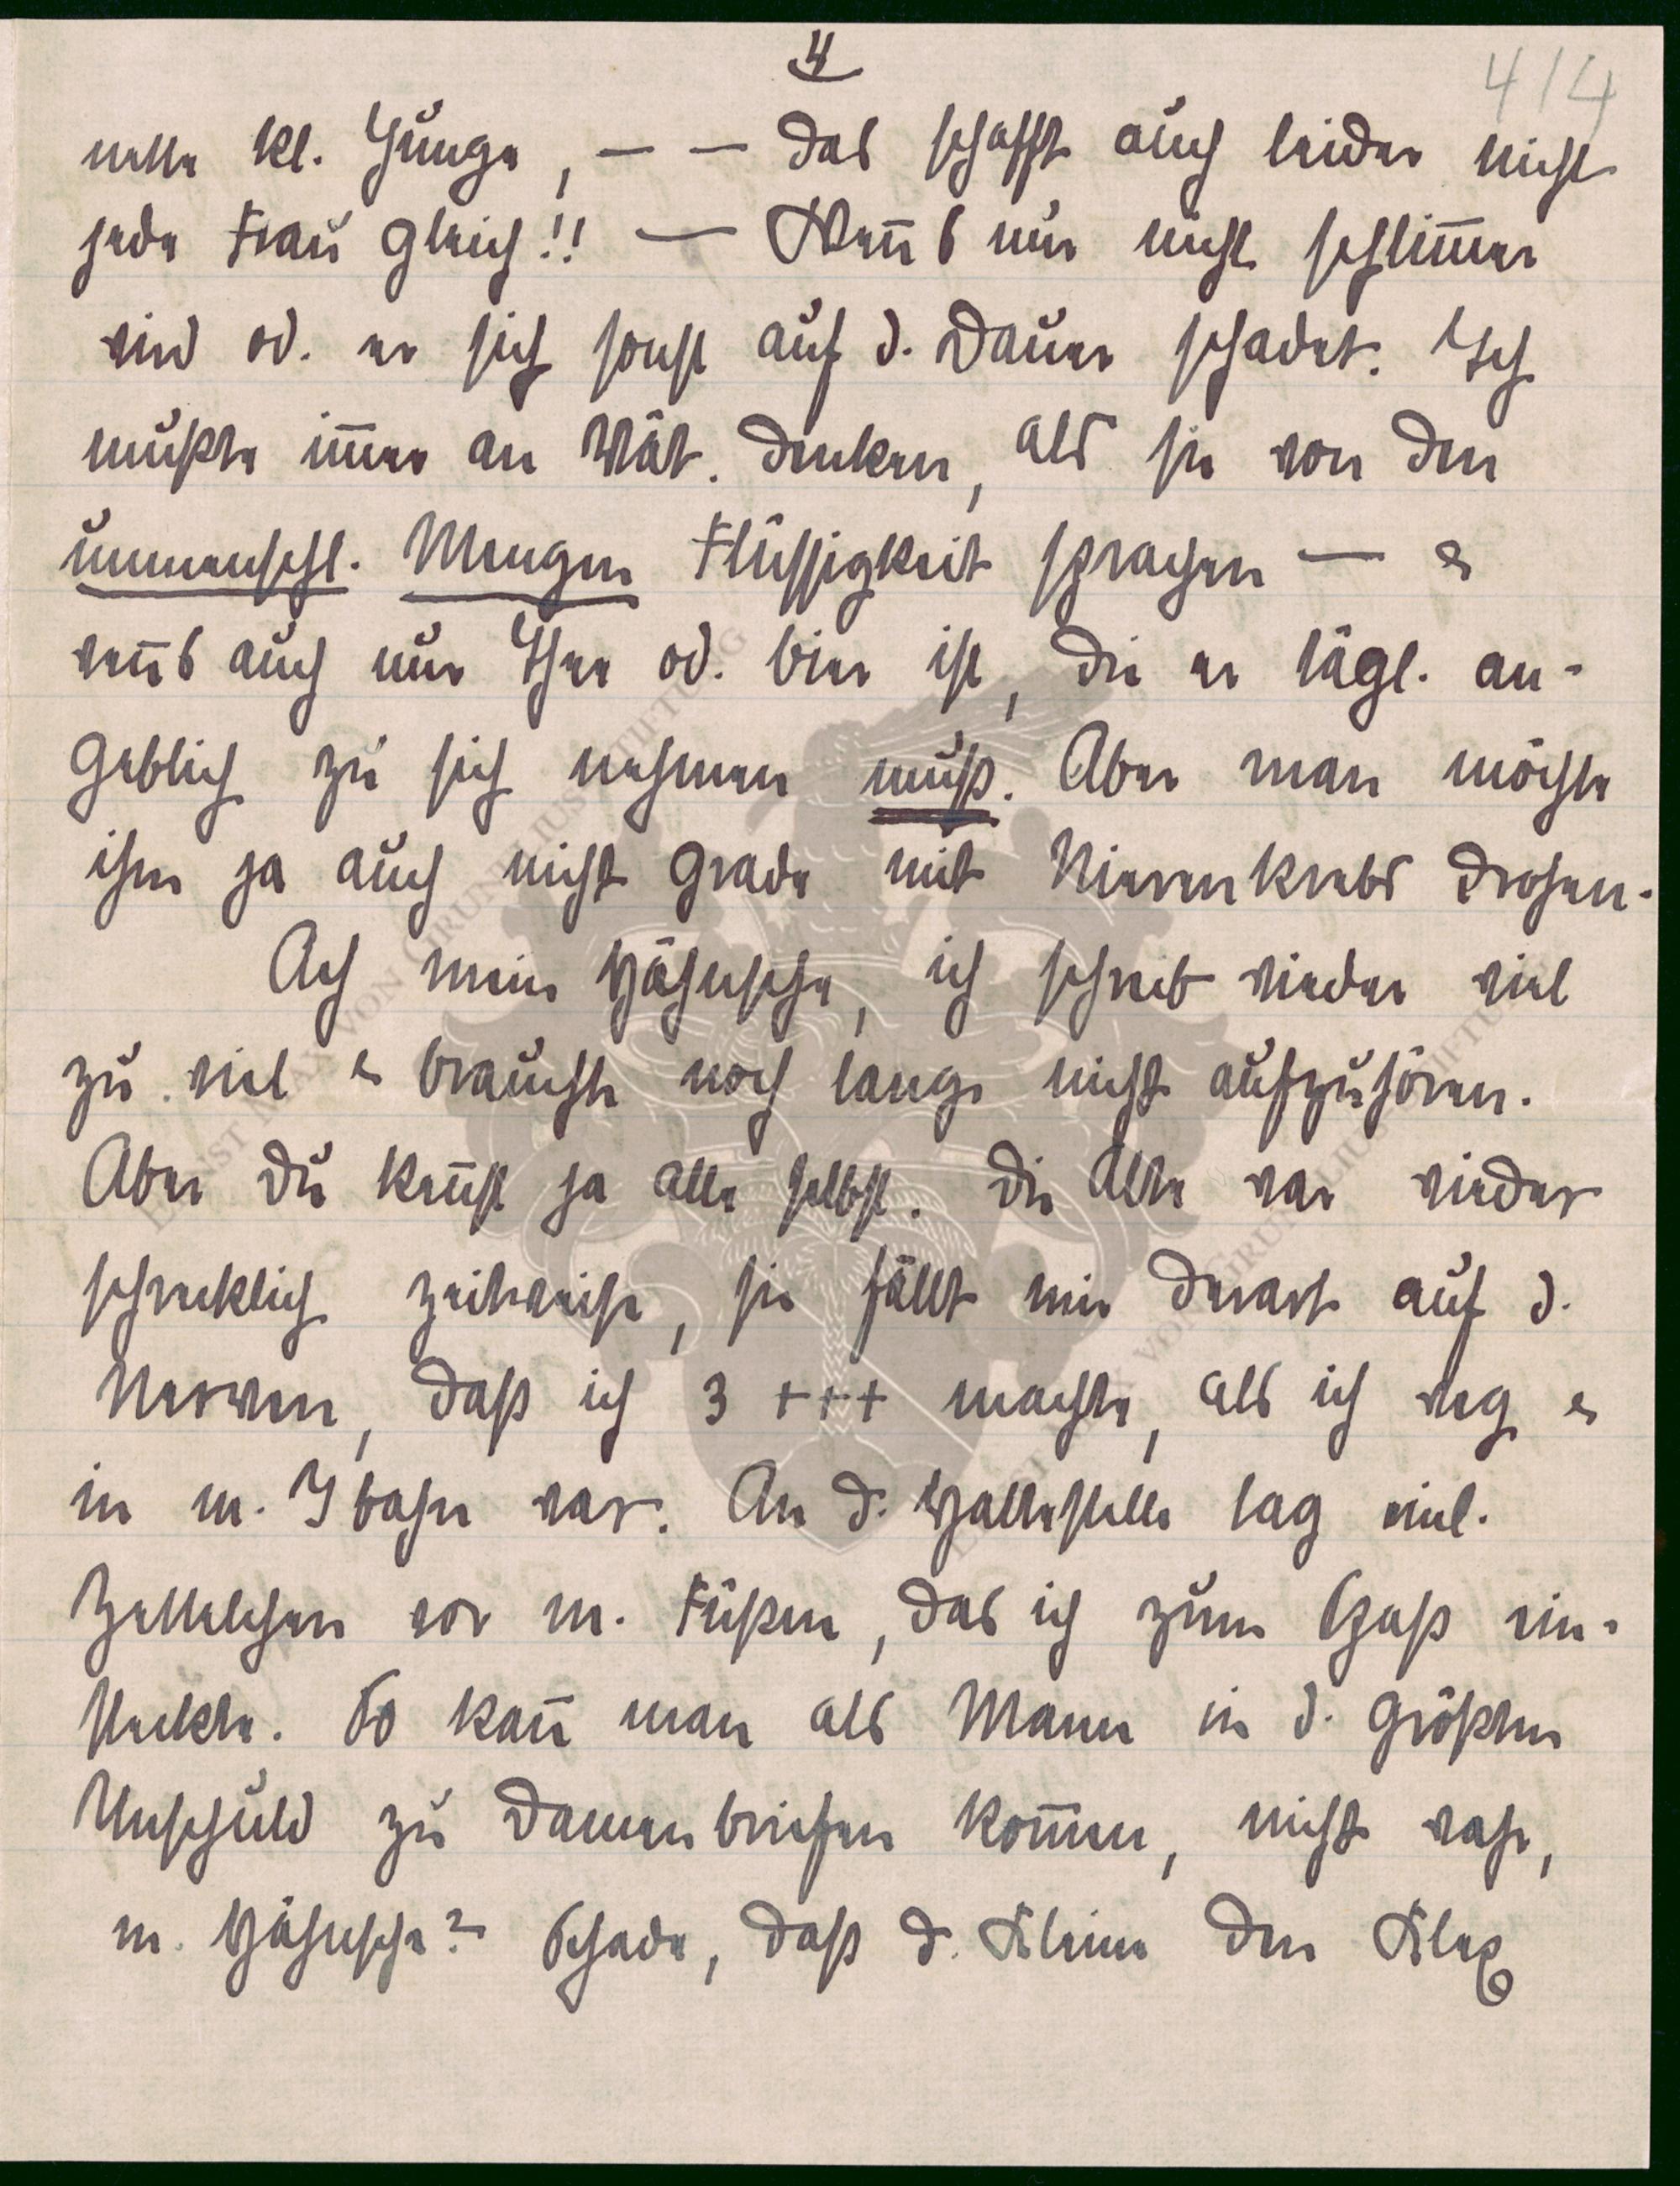 4
4/4
nette kl. Junge, — — das schafft auch leider nicht
jede Frau gleich!! — Wenn's nur nicht schlimmer
wird od. er sich sonst auf d. Dauer schadet. Ich
mußte im̅er an Vät. denken, als sie von den
unmenschl. Mengen Flüssigkeit sprachen — &
wen̅s auch nur Thee od. bier ist, die er tägl. an-
geblich zu sich nehmen muß. Aber man möchte
ihm ja auch nicht grade mit Nierenkrebs drohen.
Ach mein Hähnsche, ich schreib wieder viel
zu viel & brauchte noch lange nicht aufzuhören.
Aber Du ken̅st ja alle selbst. Die Alte war wieder
schrecklich zeitweise, sie fällt mir derart auf d.
Nerven, daß ich 3 +++ machte, als ich weg &
in m. I bahn war. An d. Haltestelle lag einl.
Zettelchen vor m. Füßen, das ich zum Spaß ein-
steckte. So kan̅ man als Mann in d. größten
Unschuld zu Damenbriefen kom̅en, nicht wahr,
m. Hähnsche? Schade, daß d. Kleine den Klex